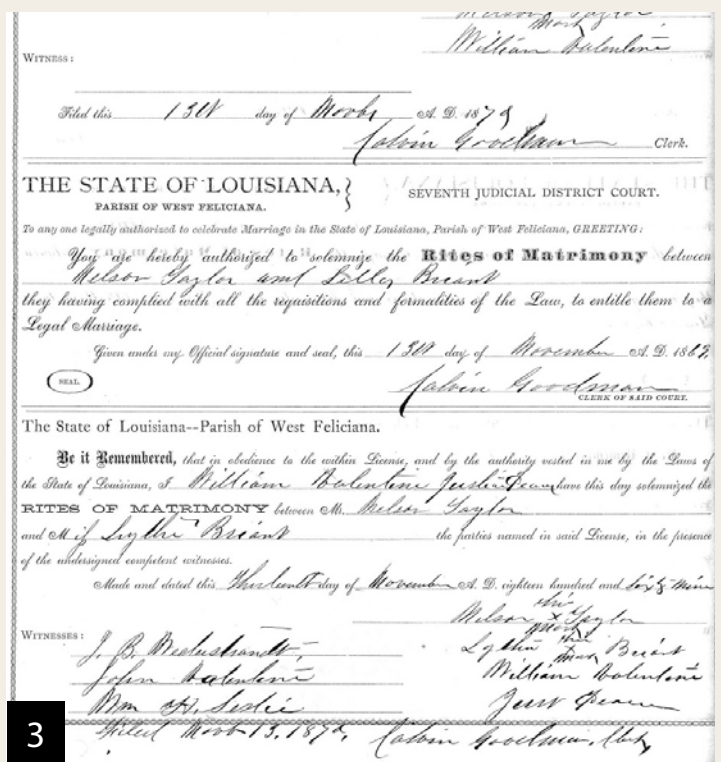 Taylor
mark
William Valentine
WITNESS:
Filed this 13th day of Novbr A. D. 1879
Calvin Goodman Clerk.
THE STATE OF LOUISIANA,} SEVENTH JUDICIAL DISTRICT COURT.
PARISH OF WEST FELICIANA.
To any one legally authorized to celebrate Marriage in the State of Louisiana, Parish of West Feliciana, GREETING:
You are hereby authorized to solemnize the Rites of Matrimony between
Nelson Taylor and Briant
they having complied with all the requisitions and formalities of the Law, to entitle them to a
Legal Marriage.
Given under my Official signature and seal, this 13th day of November A. D. 1869.
SEAL.
Calvin Goodman
CLERK OF SAID COURT.
The State of Louisiana--Parish of West Feliciana.
Be it Remembered, that in obedience to the within License, and by the authority vested in me by the Laws of
the State of Louisiana, I William Valentine Justice Peace have this day solemnized the
RITES OF MATRIMONY between Mr. Nelson Taylor
and M Briant the parties named in said License, in the presence
of the undersigned competent witnesses.
Made and dated this Thirteenth day of November A. D. eighteen hundred and Sixty Nine
Nelson his x mark Taylor
WITNESSES:
J. B. Briant
John Valentine William Valentine
Wm H. Leslie Just Peace
Filed Novb 13, 187 Calvin Goodman, Clerk
3